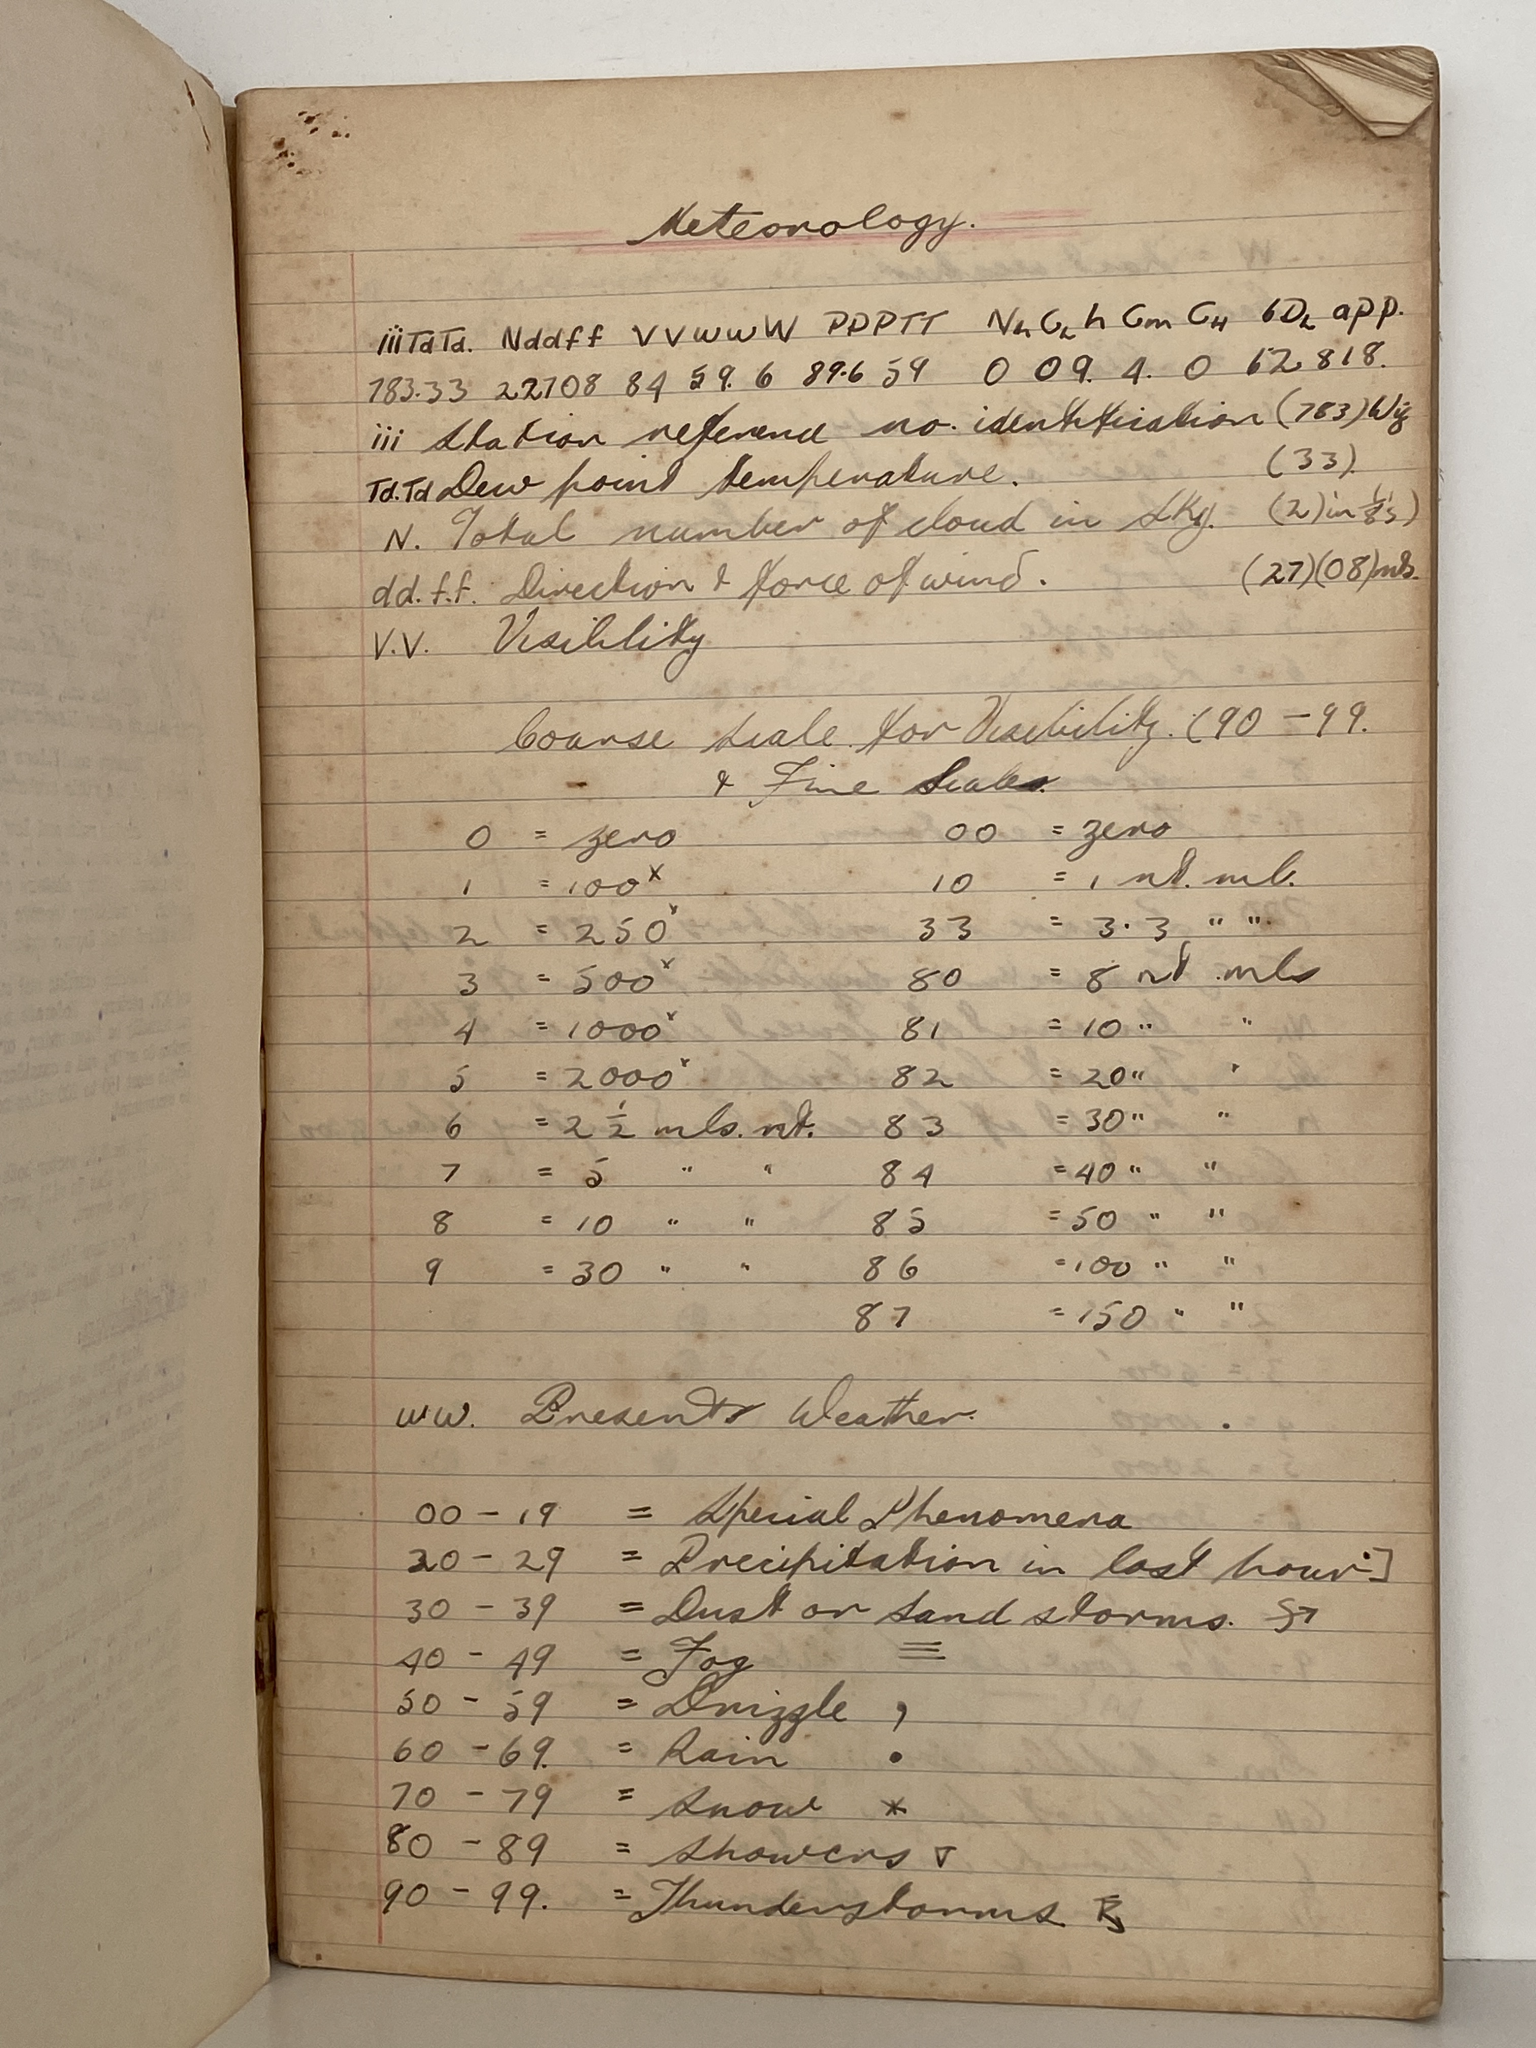 Meteorology.
iiiTdTd. Nddff VVwwW PPPTT NhCLh Cm CH 6DL app.
783.33 22708 84 59. 6 89.6 59 0 09. 4. 0 62 818.
iii Station reference no. identification (783) Wij
Td.Td Dew point temperature. (33)
N. Total number of cloud in sky. (2) in 1/8's)
dd.f.f. Direction & force of wind. (27)(08)mls.
V.V. Visibility
Coarse scale for Visibility. (90 - 99.
& Fine Scales.
0 = zero 00 = zero
1 = 100x 10 = 1 nt. ml.
2 = 250x 33 = 3.3 " "
3 = 500x 80 = 8 nt mls
4 = 1000x 81 = 10 " "
5 = 2000x 82 = 20 " "
6 = 2 1/2 mls. nt. 83 = 30 " "
7 = 5 " " 84 = 40 " "
8 = 10 " " 85 = 50 " "
9 = 30 " " 86 = 100 " "
87 = 150 " "
ww. Present Weather.
00 - 19 = Special Phenomena
20 - 29 = Precipitation in last hour ]
30 - 39 = Dust or sand storms.
40 - 49 = Fog ≡
50 - 59 = Drizzle ,
60 - 69. = Rain •
70 - 79 = Snow *
80 - 89 = Showers ▽
90 - 99. = Thunderstorms